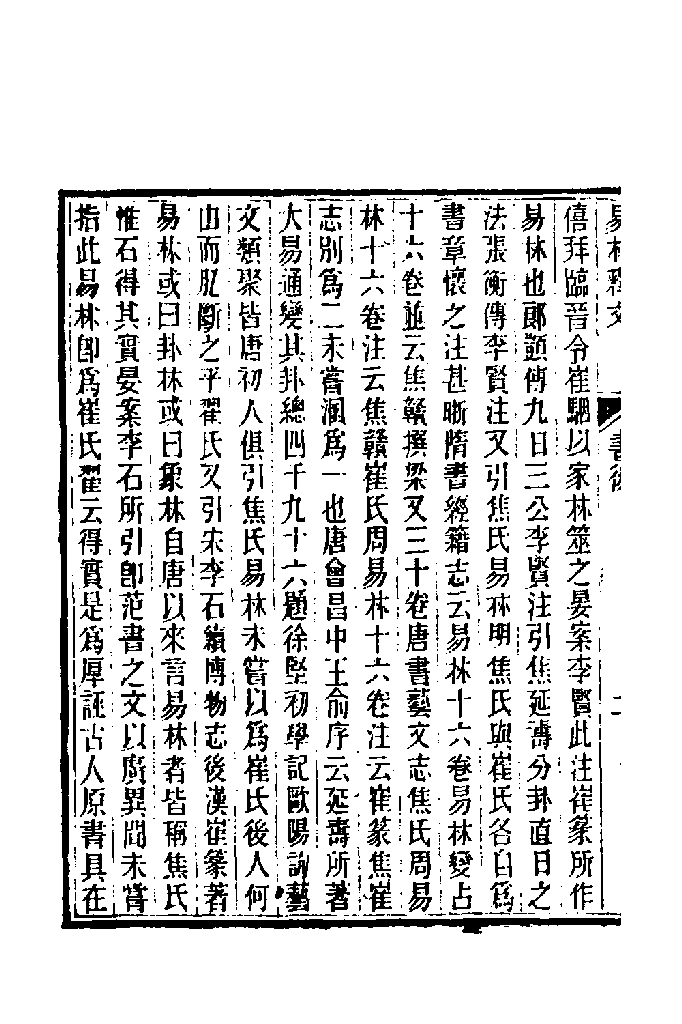 易林釋文
書後
僖拜臨晉令崔駰以家林筮之晏案李賢此注崔篆所作
易林也郎顗傳九日三公李賢注引焦延壽分卦直日之
法張衡傳李賢注又引焦氏易林明焦氏與崔氏各自爲
書章懷之注甚晰隋書經籍志云易林十六卷易林變占
十六卷並云焦贛撰梁又三十卷唐書藝文志焦氏周易
林十六卷注云焦贛崔氏周易林十六卷注云崔篆焦崔
志別爲二未嘗溷爲一也唐會昌中王俞序云延壽所著
大易通變其卦總四千九十六題徐堅初學記歐陽詢藝
文類聚皆唐初人俱引焦氏易林未嘗以爲崔氏後人何
由而肊斷之乎翟氏又引宋李石續博物志後漢崔篆著
易林或曰卦林或曰象林自唐以來言易林者皆稱焦氏
惟石得其實晏案李石所引卽范書之文以廣異聞未嘗
指此易林卽爲崔氏翟云得實是爲厚誣古人原書具在